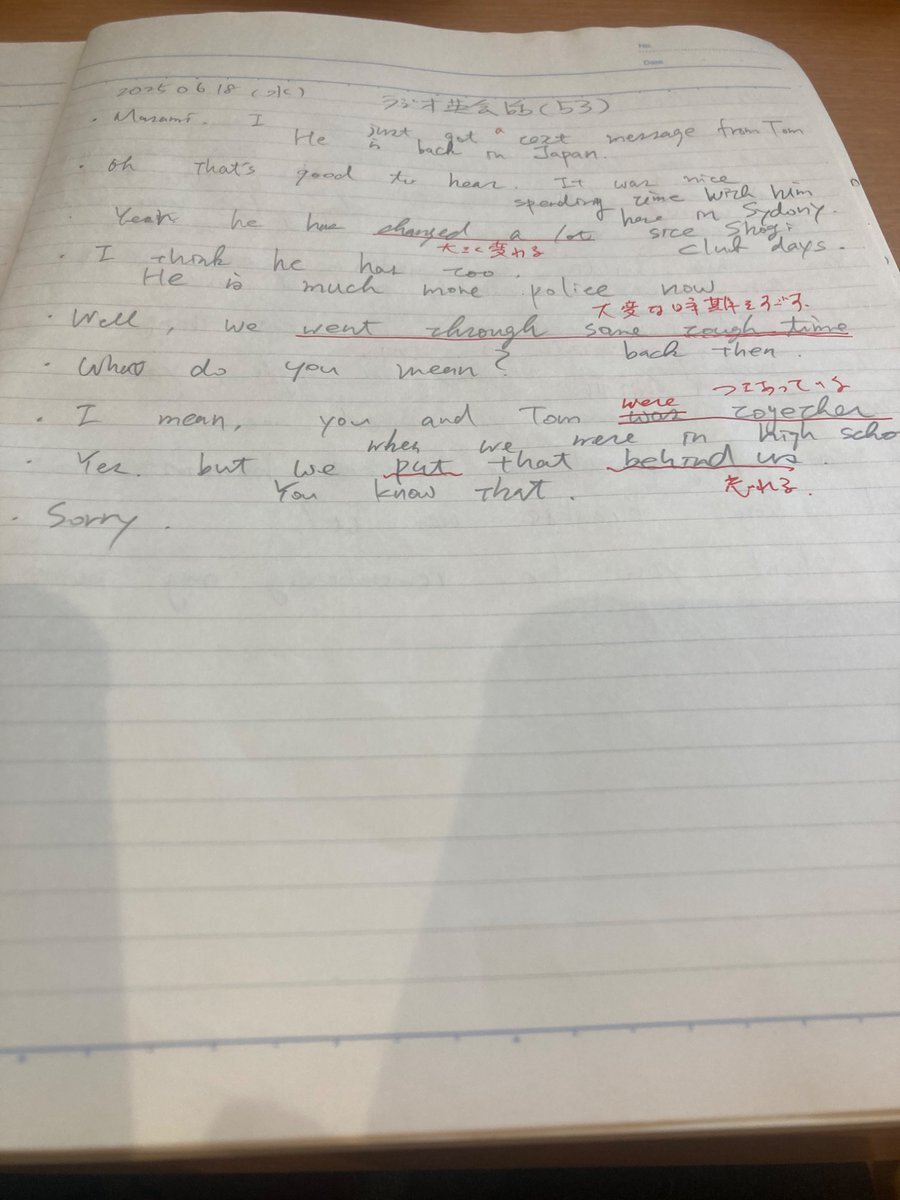 No.
Date
2025 06 18 (水)
ラジオ英会話(53)
・Masami. I just got a text message from Tom
He is back in Japan.
・Oh That's good to hear. It was nice
spending time with him
here in Sydony.
Yeah he has changed a lot sice Shogi
大きく変わる
club days.
・I think he has too.
He is much more police now
大変な時期をすごす.
・Well, we went through some rough time
back then.
・What do you mean?
つきあっている
were
・I mean, you and Tom was together
when we were in high scho
・Yes. but we put that behind us.
You know that.
忘れる.
・Sorry.